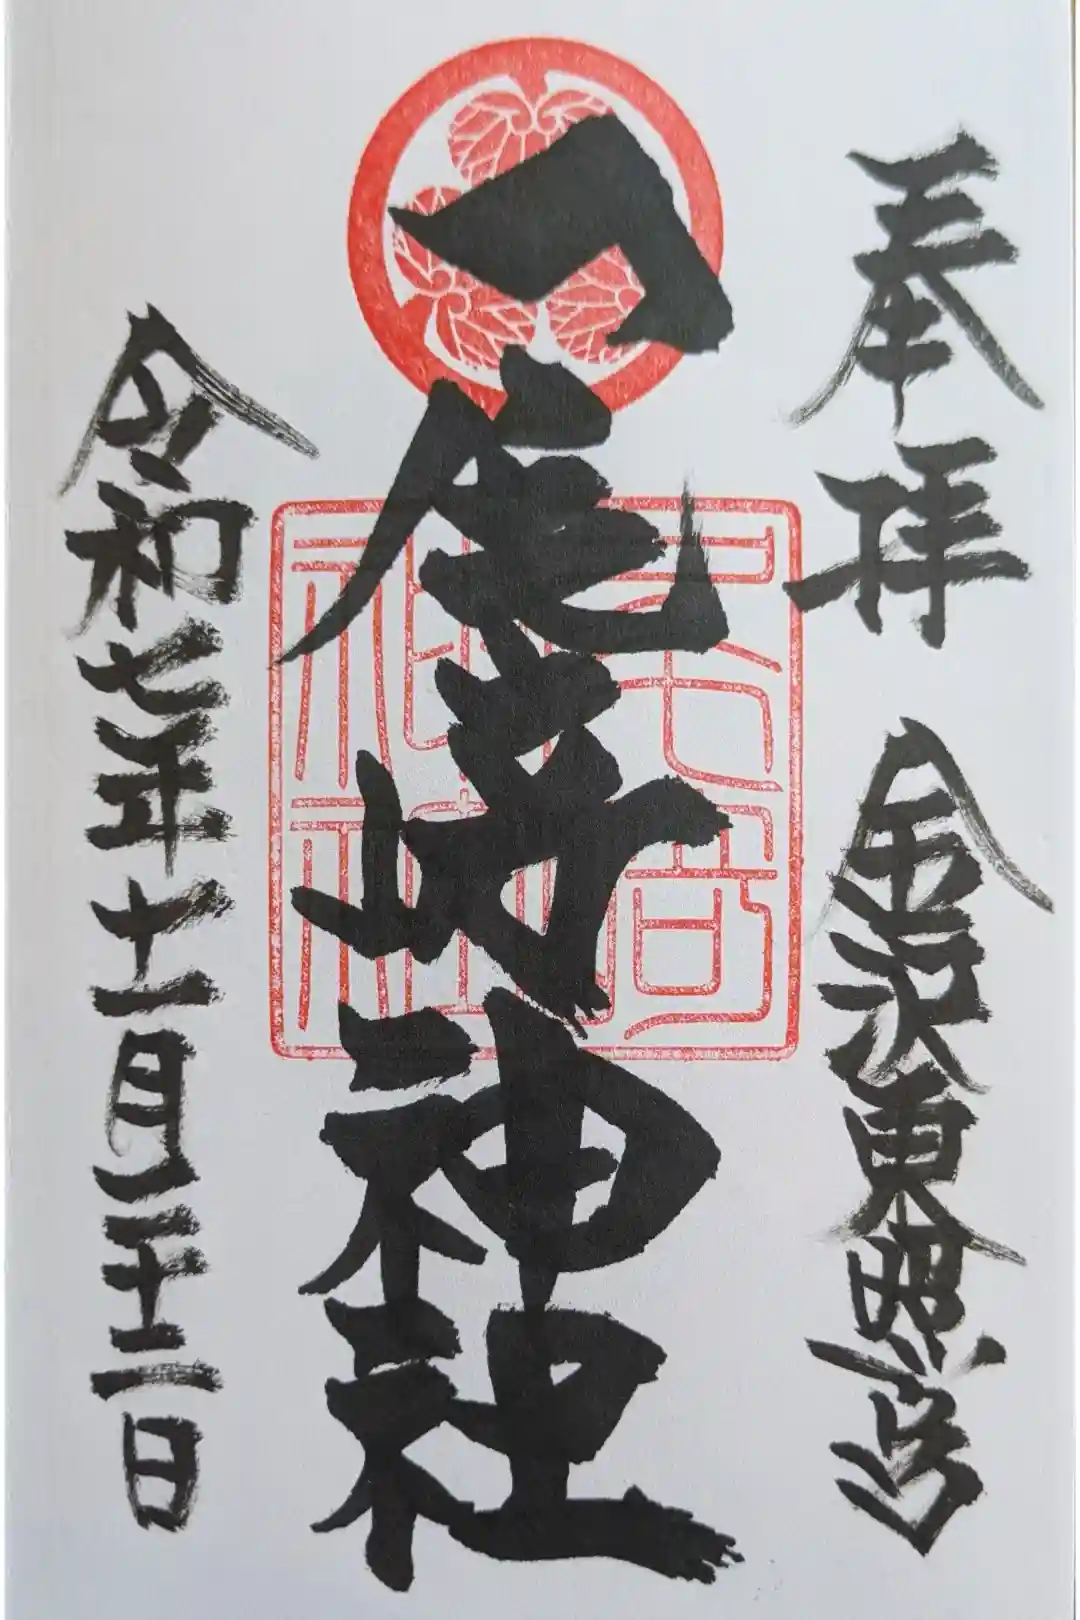 奉拝 金沢東照宮
尾﨑神社
令和七年十一月二十二日
尾﨑神社